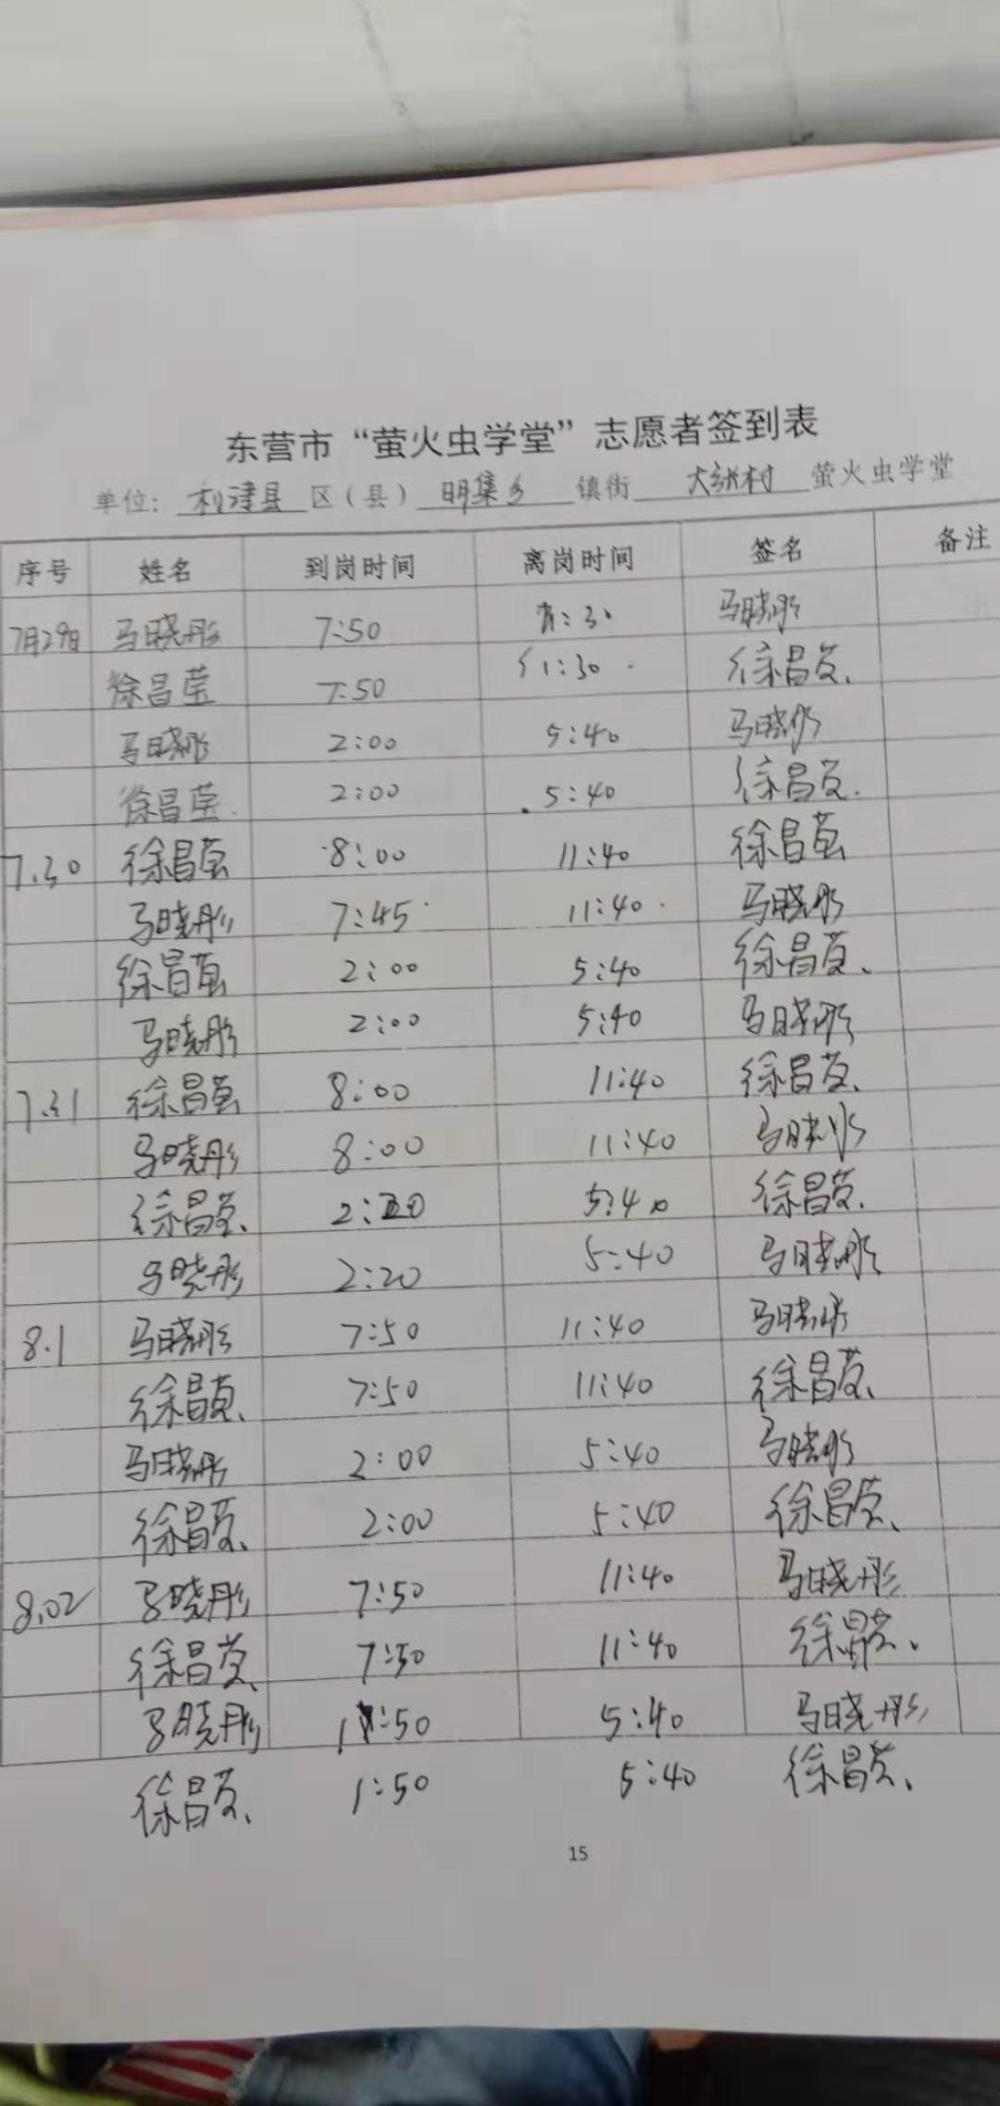 东营市“萤火虫学堂”志愿者签到表
单位：利津县区（县）明集乡镇街大张村萤火虫学堂
序号 姓名 到岗时间 离岗时间 签名 备注
7月29日 马晓彤 7:50 11:30 马晓彤
徐昌莹 7:50 11:30 徐昌莹
马晓彤 2:00 5:40 马晓彤
徐昌莹 2:00 5:40 徐昌莹
7.30 徐昌莹 8:00 11:40 徐昌莹
马晓彤 7:45 11:40 马晓彤
徐昌莹 2:00 5:40 徐昌莹
马晓彤 2:00 5:40 马晓彤
7.31 徐昌莹 8:00 11:40 徐昌莹
马晓彤 8:00 11:40 马晓彤
徐昌莹 2:20 5:40 徐昌莹
马晓彤 2:20 5:40 马晓彤
8.1 马晓彤 7:50 11:40 马晓彤
徐昌莹 7:50 11:40 徐昌莹
马晓彤 2:00 5:40 马晓彤
徐昌莹 2:00 5:40 徐昌莹
8.02 马晓彤 7:50 11:40 马晓彤
徐昌莹 7:50 11:40 徐昌莹
马晓彤 1:50 5:40 马晓彤
徐昌莹 1:50 5:40 徐昌莹
15